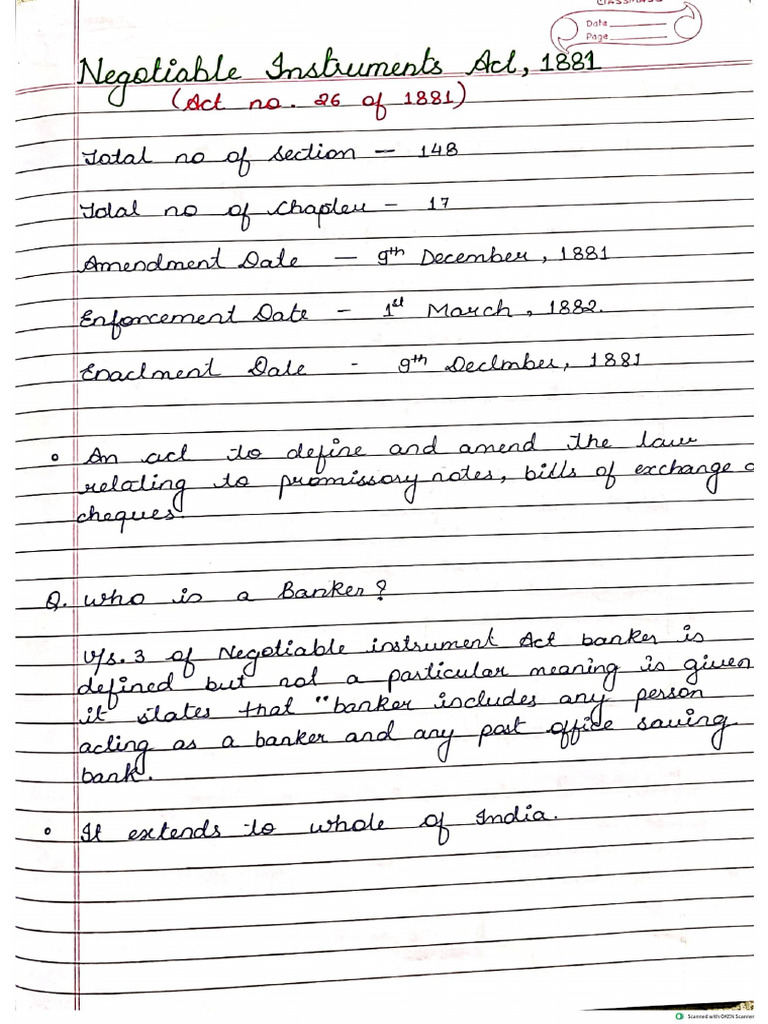 CLASSMATE
Date
Page
Negotiable Instruments Act, 1881
(Act no. 26 of 1881)
Total no of section - 148
Total no of chapter - 17
Amendment Date - 9th December, 1881
Enforcement Date - 1st March, 1882.
Enactment Date - 9th December, 1881
• An act to define and amend the law
relating to promissory notes, bills of exchange
cheques.
Q. Who is a Banker?
U/s. 3 of Negotiable instrument Act banker is
defined but not a particular meaning is given
it states that "banker includes any person
acting as a banker and any post office saving
bank.
• It extends to whole of India.
Scanned with OKEN Scanner